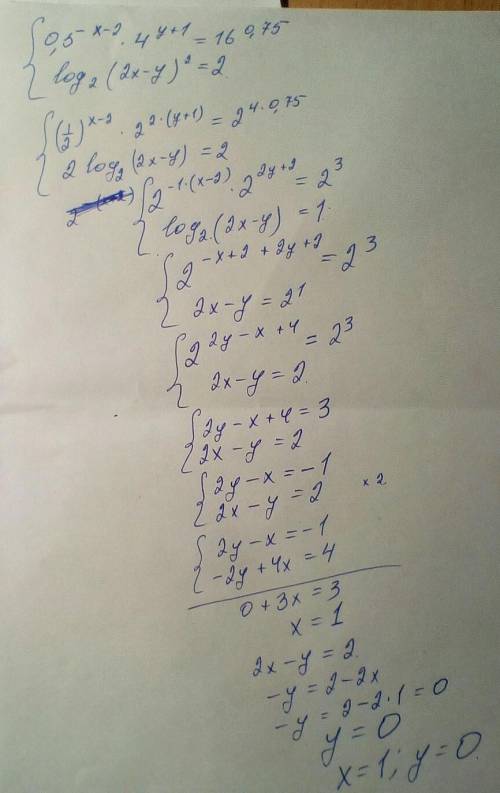 0,5^{-x-2} · 4^{y+1} = 16^{0,75}
log₂(2x-y)² = 2.
(1/2)^{x-2} · 2^{2·(y+1)} = 2^{4·0,75}
2 log₂(2x-y) = 2
2^{-1·(x-2)} · 2^{2y+2} = 2³
log₂(2x-y) = 1.
2^{-x+2+2y+2} = 2³
2x-y = 2¹
2^{2y-x+4} = 2³
2x-y = 2.
2y-x+4 = 3
2x-y = 2
2y-x = -1
2x-y = 2 ×2
2y-x = -1
-2y+4x = 4
0+3x = 3
x = 1
2x-y = 2.
-y = 2-2x
-y = 2-2·1 = 0
y = 0
x = 1; y = 0.